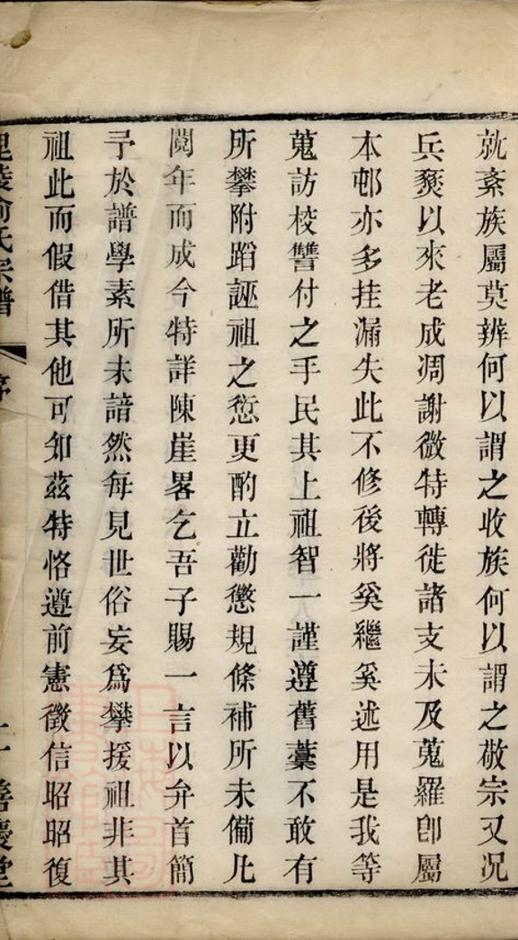 就紊族屬莫辨何以謂之收族何以謂之敬宗又况
兵燹以來老成凋謝微特轉徙諸支未及蒐羅卽屬
本邨亦多挂漏失此不修後將奚繼奚述用是我等
蒐訪校讐付之手民其上祖智一謹遵舊藁不敢有
所攀附蹈誣祖之愆更酌立勸懲規條補所未備凢
閱年而成今特詳陳崖畧乞吾子賜一言以弁首簡
予於譜學素所未諳然每見世俗妄爲攀援祖非其
祖此而假借其他可知茲特恪遵前憲徵信昭昭復
俞氏宗譜 序 二 善慶堂